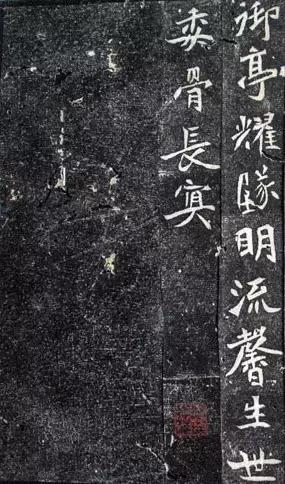 御亭耀墜明流馨生世
委骨長冥